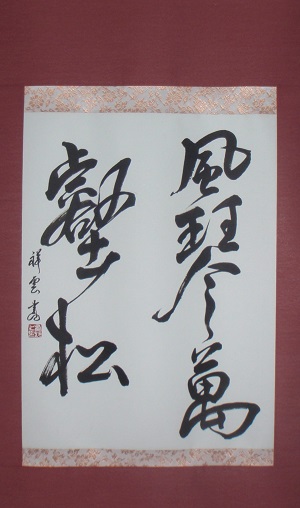 風琴萬
壑松
祥雲書